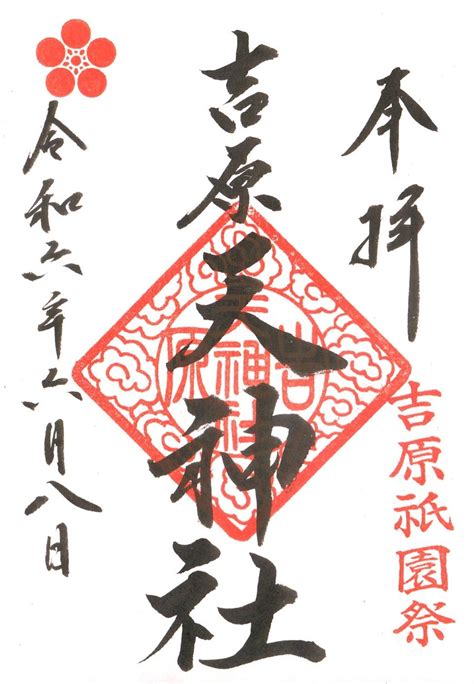 本拝
吉原祇園祭
吉原天神社
吉
神社
原
令和六年六月八日